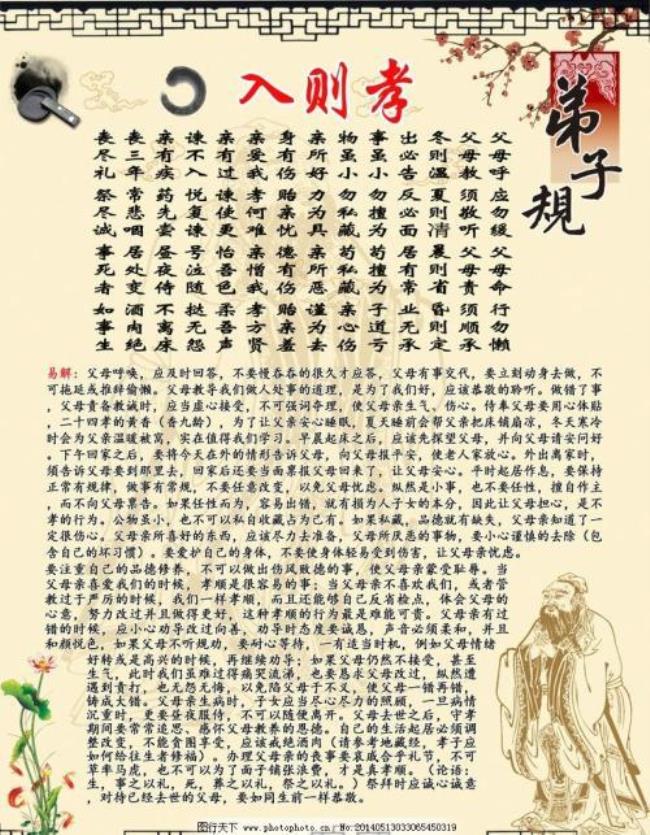 弟子规
入则孝
父母呼 应勿缓 父母命 行勿懒
父母教 须敬听 父母责 须顺承
冬则温 夏则清 晨则省 昏则定
出必告 反必面 居有常 业无承
事虽小 勿擅为 苟擅为 子道亏
物虽小 勿私藏 苟私藏 亲心伤
亲所好 力为具 亲所恶 谨为去
身有伤 贻亲忧 德有伤 贻亲羞
亲爱我 孝何难 亲憎我 孝方贤
亲有过 谏使更 怡吾色 柔吾声
谏不入 悦复谏 号泣随 挞无怨
亲有疾 药先尝 昼夜侍 不离床
丧三年 常悲咽 居处变 酒肉绝
丧尽礼 祭尽诚 事死者 如事生
易解：父母呼唤，应及时回答，不要慢吞吞的很久才应答，父母有事交代，要立刻动身去做，不
可拖延或推辞偷懒。父母教导我们做人处事的道理，是为了我们好，应该恭敬的聆听。做错了事
，父母责备教诫时，应当虚心接受，不可强词夺理，使父母亲生气、伤心。侍奉父母要用心体贴
，二十四孝的黄香（香九龄），为了让父亲安心睡眠，夏天睡前会帮父亲把床铺扇凉，冬天寒冷
时会为父亲温暖被窝，实在值得我们学习。早晨起床之后，应该先探望父母，并向父母请安问好
。下午回家之后，要将今天在外的情形告诉父母，向父母报平安，使老人家放心。外出离家时，
须告诉父母要到那里去，回家后还要当面禀报父母回来了，让父母安心。平时起居作息，要保持
正常有规律，做事有常规，不要任意改变，以免父母忧虑。纵然是小事，也不要任性，擅自作主
，而不向父母禀告。如果任性而为，容易出错，就有损为人子女的本分，因此让父母担心，是不
孝的行为。公物虽小，也不可以私自收藏占为己有。如果私藏，品德就有缺失，父母亲知道了一
定很伤心。父母亲所喜好的东西，应该尽力去准备，父母所厌恶的事物，要小心谨慎的去除（包
含自己的坏习惯）。要爱护自己的身体，不要使身体轻易受到伤害，让父母亲忧虑。
要注重自己的品德修养，不可以做出伤风败德的事，使父母亲蒙受耻辱。当
父母亲喜爱我们的时候，孝顺是很容易的事；当父母亲不喜欢我们，或者管
教过于严厉的时候，我们一样孝顺，而且还能够自己反省检点，体会父母的
心意，努力改过并且做得更好，这种孝顺的行为最是难能可贵。父母亲有过
错的时候，应小心劝导改过向善、劝导时态度要诚恳，声音必须柔和，并且
和颜悦色，如果父母不听规劝，要耐心等待，一有适当时机，例如父母情绪
好转或是高兴的时候，再继续劝导；如果父母仍然不接受，甚至
生气，此时我们虽难过得痛哭流涕，也要恳求父母改过，纵然遭
遇到责打，也无怨无悔，以免陷父母于不义，使父母一错再错，
铸成大错。父母亲生病时，子女应当尽心尽力的照顾，一旦病情
沉重时，更要昼夜服侍，不可以随便离开。父母去世之后，守孝
期间要常常追思、感怀父母教养的恩德。自己的生活起居必须调
整改变，不能贪图享受，应该戒绝酒肉（请参考地藏经，孝子应
如何给往生者修福）。办理父母亲的丧事要哀戚合乎礼节，不可
草率马虎，也不可以为了面子铺张浪费，才是真孝顺。（论语：
生，事之以礼，死，葬之以礼，祭之以礼。）祭拜时应诚心诚意
，对待已经去世的父母，要如同生前一样恭敬。
图行天下 www.photophoto.cn No:20140513033065450319